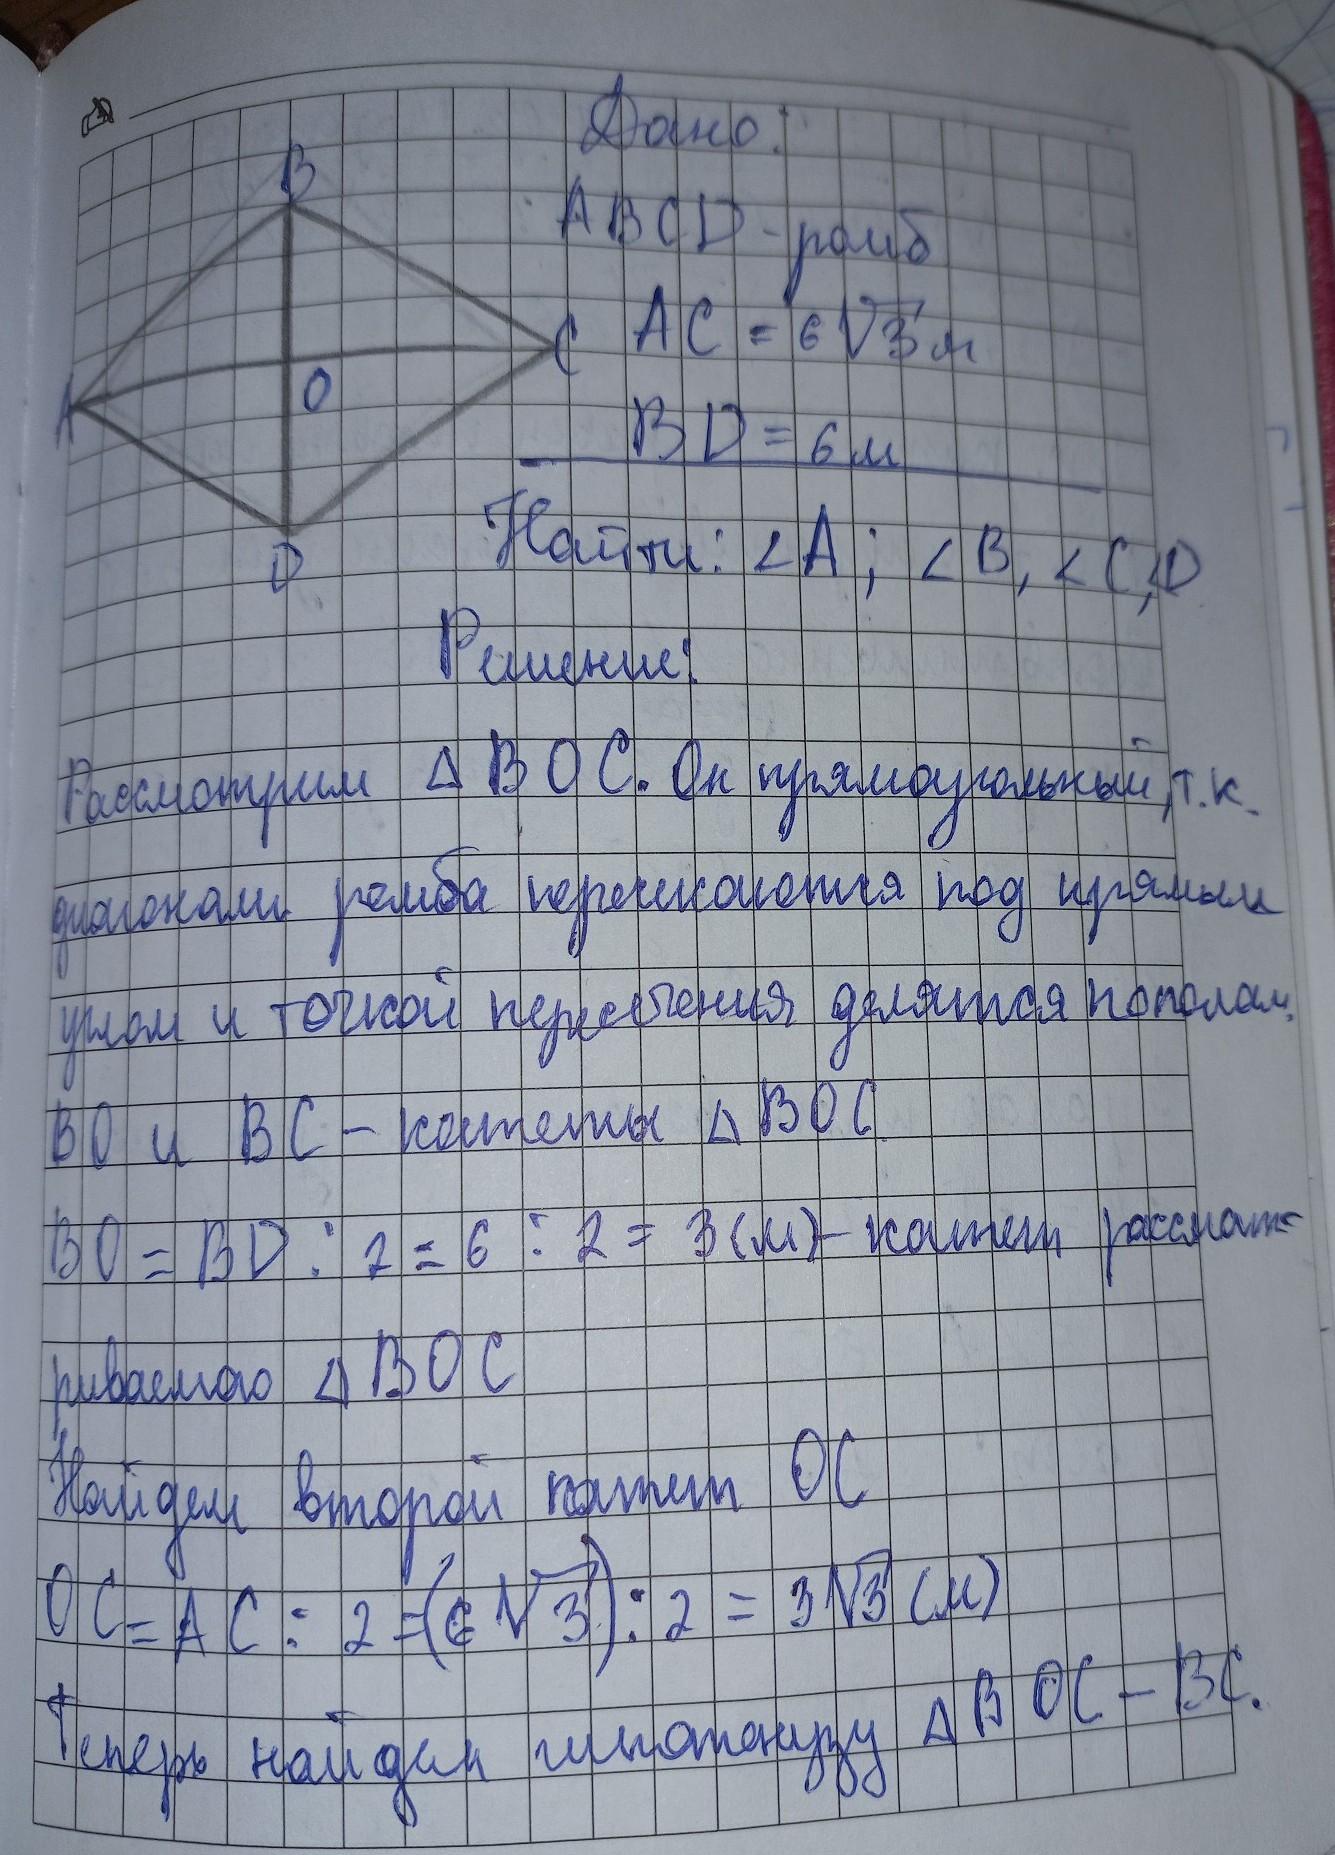 Дано:
B
ABCD - ромб
AC = 6√3 м
C
A
O
BD = 6 м
D
Найти: ∠A; ∠B, ∠C, ∠D
Решение:
Рассмотрим △ BOC. Он прямоугольный, т.к.
диагонали ромба пересекаются под прямым
углом и точкой пересечения делятся пополам.
BO и BC - катеты △ BOC
BO = BD : 2 = 6 : 2 = 3 (м) - катет рассмат-
риваемого △ BOC
Найдем второй катет OC
OC = AC : 2 = (6√3) : 2 = 3√3 (м)
Теперь найдем гипотенузу △ BOC - BC.